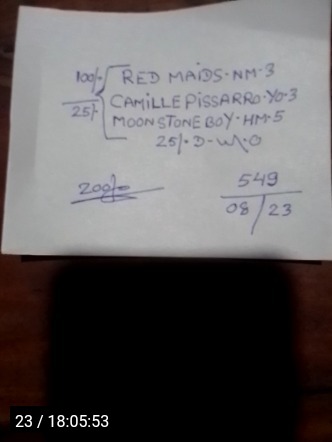 100/- RED MAIDS·NM·3
25/- CAMILLE PISSARRO·YO·3
MOONSTONE BOY·HM·5
25/·D-W/·O
200/-
549
08/23
23 / 18:05:53